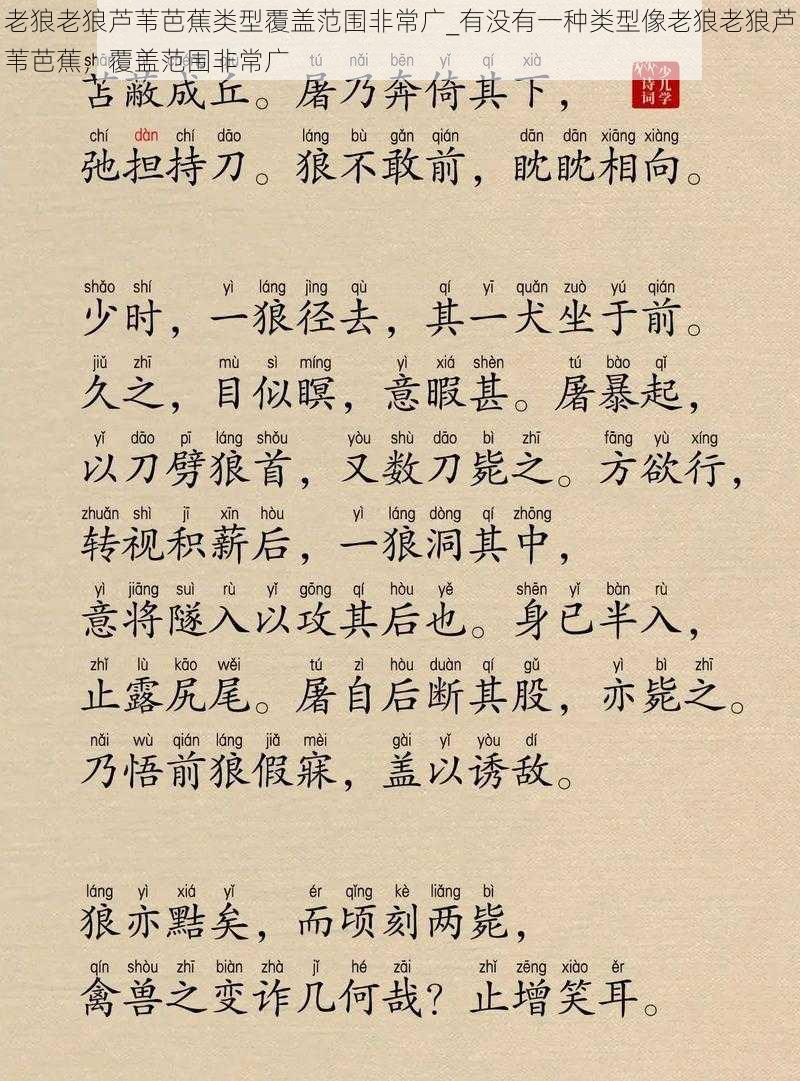 老狼老狼芦苇芭蕉类型覆盖范围非常广_有没有一种类型像老狼老狼芦
苇芭蕉，覆盖范围非常广
苫蔽成丘。屠乃奔倚其下，
少儿学诗词
chí dàn chí dāo láng bù gǎn qián dān dān xiāng xiàng
弛担持刀。狼不敢前，眈眈相向。
shǎo shí yì láng jìng qù qí yī quǎn zuò yú qián
少时，一狼径去，其一犬坐于前。
jiǔ zhī mù sì míng yì xiá shèn tú bào qǐ
久之，目似瞑，意暇甚。屠暴起，
yǐ dāo pī láng shǒu yòu shù dāo bì zhī fāng yù xíng
以刀劈狼首，又数刀毙之。方欲行，
zhuǎn shì jī xīn hòu yì láng dòng qí zhōng
转视积薪后，一狼洞其中，
yì jiāng suì rù yǐ gōng qí hòu yě shēn yǐ bàn rù
意将隧入以攻其后也。身已半入，
zhǐ lù kāo wěi tú zì hòu duàn qí gǔ yì bì zhī
止露尻尾。屠自后断其股，亦毙之。
nǎi wù qián láng jiǎ mèi gài yǐ yòu dí
乃悟前狼假寐，盖以诱敌。
láng yì xiá yǐ ér qǐng kè liǎng bì
狼亦黠矣，而顷刻两毙，
qín shòu zhī biàn zhà jǐ hé zāi zhǐ zēng xiào ěr
禽兽之变诈几何哉？止增笑耳。